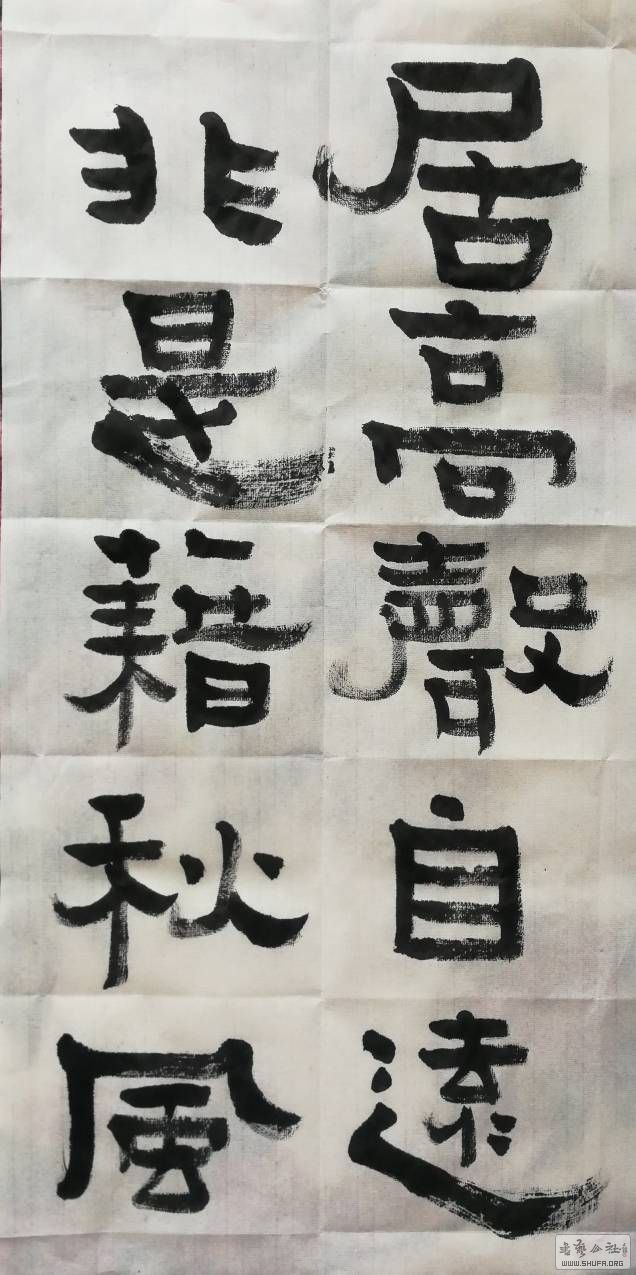 居高聲自遠
非是藉秋風
書藝公社
WWW.SHUFA.ORG